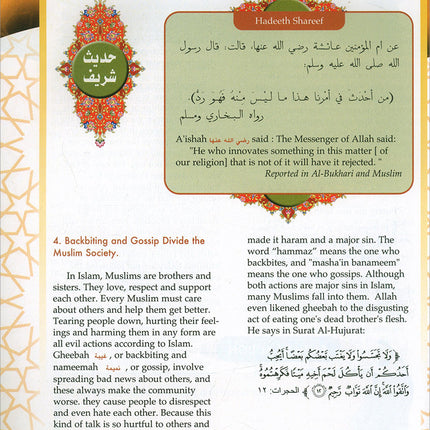 حديث
شريف
Hadeeth Shareef
عن ام المؤمنين عائشة رضي الله عنها، قالت: قال رسول
الله صلى الله عليه وسلم:
(من أحْدَثَ في أمْرِنا هذا ما لَيْسَ مِنْهُ فَهُوَ رَدٌّ).
رواه البخاري ومسلم
A'ishah رضي الله عنها said : The Messenger of Allah said:
"He who innovates something in this matter [ of
our religion] that is not of it will have it rejected. "
Reported in Al-Bukhari and Muslim
4. Backbiting and Gossip Divide the
Muslim Society.
In Islam, Muslims are brothers and
sisters. They love, respect and support
each other. Every Muslim must care
about others and help them get better.
Tearing people down, hurting their feel-
ings and harming them in any form are
all evil actions according to Islam.
Gheebah غيبة , or backbiting and
nameemah نميمة , or gossip, involve
spreading bad news about others, and
these always make the community
worse. they cause people to disrespect
and even hate each other. Because this
kind of talk is so hurtful to others and
made it haram and a major sin. The
word "hammaz" means the one who
backbites, and "masha'in banameem"
means the one who gossips. Although
both actions are major sins in Islam,
many Muslims fall into them. Allah
even likened gheebah to the disgusting
act of eating one's dead brother's flesh.
He says in Surat Al-Hujurat:
﴿ وَلَا تَجَسَّسُوا وَلَا يَغْتَب بَّعْضُكُم بَعْضًا أَيُحِبُّ
أَحَدُكُمْ أَن يَأْكُلَ لَحْمَ أَخِيهِ مَيْتًا فَكَرِهْتُمُوهُ
وَاتَّقُوا اللَّهَ إِنَّ اللَّهَ تَوَّابٌ رَّحِيمٌ ﴿١٢﴾ ﴾ الحجرات: ١٢